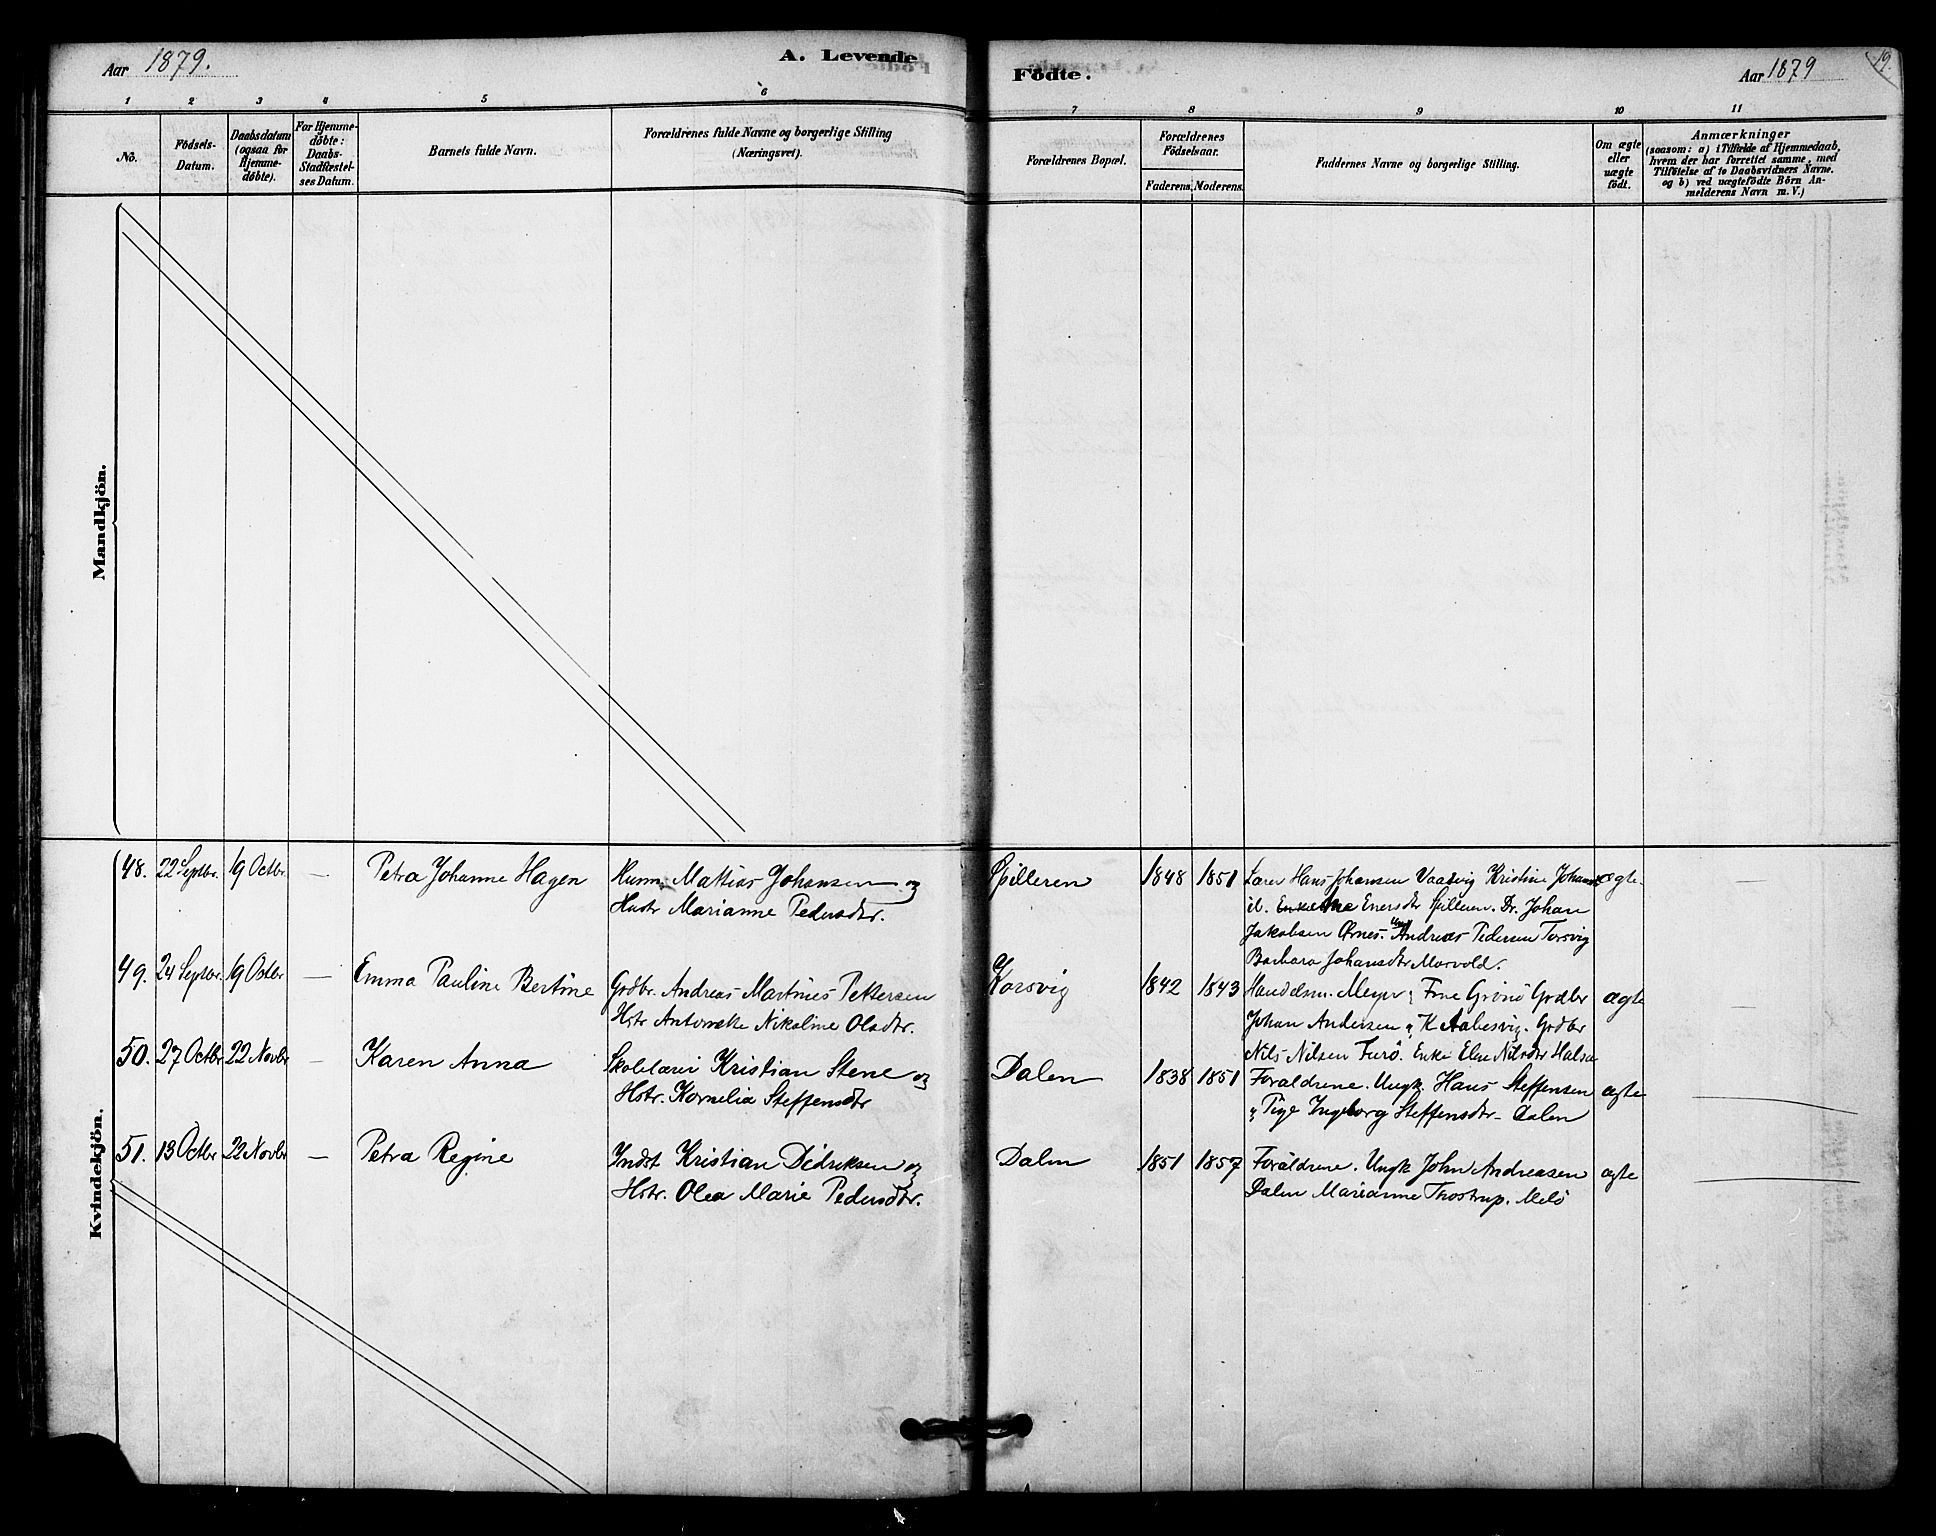 Aar 1879.
A. Levende
Födte.
Aar 1879
19.
1 2 3 4 5 6 7 8 9 10 11
No.
Födsels-
Datum.
Daabsdatum
(ogsaa for
Hjemme-
døbte).
For Hjemme-
døbte:
Daabs-
Stadfæstel-
ses Datum.
Barnets fulde Navn.
Forældrenes fulde Navne og borgerlige Stilling
(Næringsvei).
Forældrenes Bopæl.
Forældrenes
Födselsaar.
Faderens. Moderens.
Faddernes Navne og borgerlige Stilling.
Om ægte
eller
uægte
født.
Anmærkninger
(saasom: a) i Tilfælde af Hjemmedaab,
hvem der har forrettet samme, med
Tilföielse af to Daabsvidners Navne.
og b) ved uægtefödte Börn An-
melderens Navn m. V.)
Mandkjön.
Kvindekjön.
48. 22 Septbr. 19 Octbr. — Petra Johanne Hagen
Husm. Mattias Johansen og
Hustr Marianne Pedersdtr.
Spilleren 1848 1851
Lærer Hans Johansen Vaatvig Kristine Johans
ib. Enersdtr Spilleren. Dr. Johan
Jakobsen Ørnes. Ungk Andreas Pedersen Torsvig
Barbara Johansdtr Marvold.
ægte.
49. 24 Septbr. 19 Octbr — Emma Pauline Bertine
Grdbr. Andreas Martines Pettersen
Hstr Antonette Nikoline Olsdtr.
Korsvig 1842 1843
Handelsm. Meyer " Frue Grönö Grdbr
Johan Andersen " K Aabesvig. Grdbr
Nils Nilsen Furö. Enke Elen Nilsdtr Halsa
ægte —
50. 27 Octbr 22 Novbr — Karen Anna
Skolelærer Kristian Stene og
Hstr. Kornelia Steffensdtr
Dalen 1838 1851
Forældrene. Ungk. Hans Steffensen
" Pige Ingeborg Steffensdtr Dalen
ægte —
51. 13 Octbr 22 Novbr — Petra Regine
Indst Kristian Didriksen og
Hstr. Olea Marie Pedersdtr.
Dalen 1851 1857
Forældrene. Ungk John Andreasen
Dalen Marianne Trostrup. Melö
ægte —